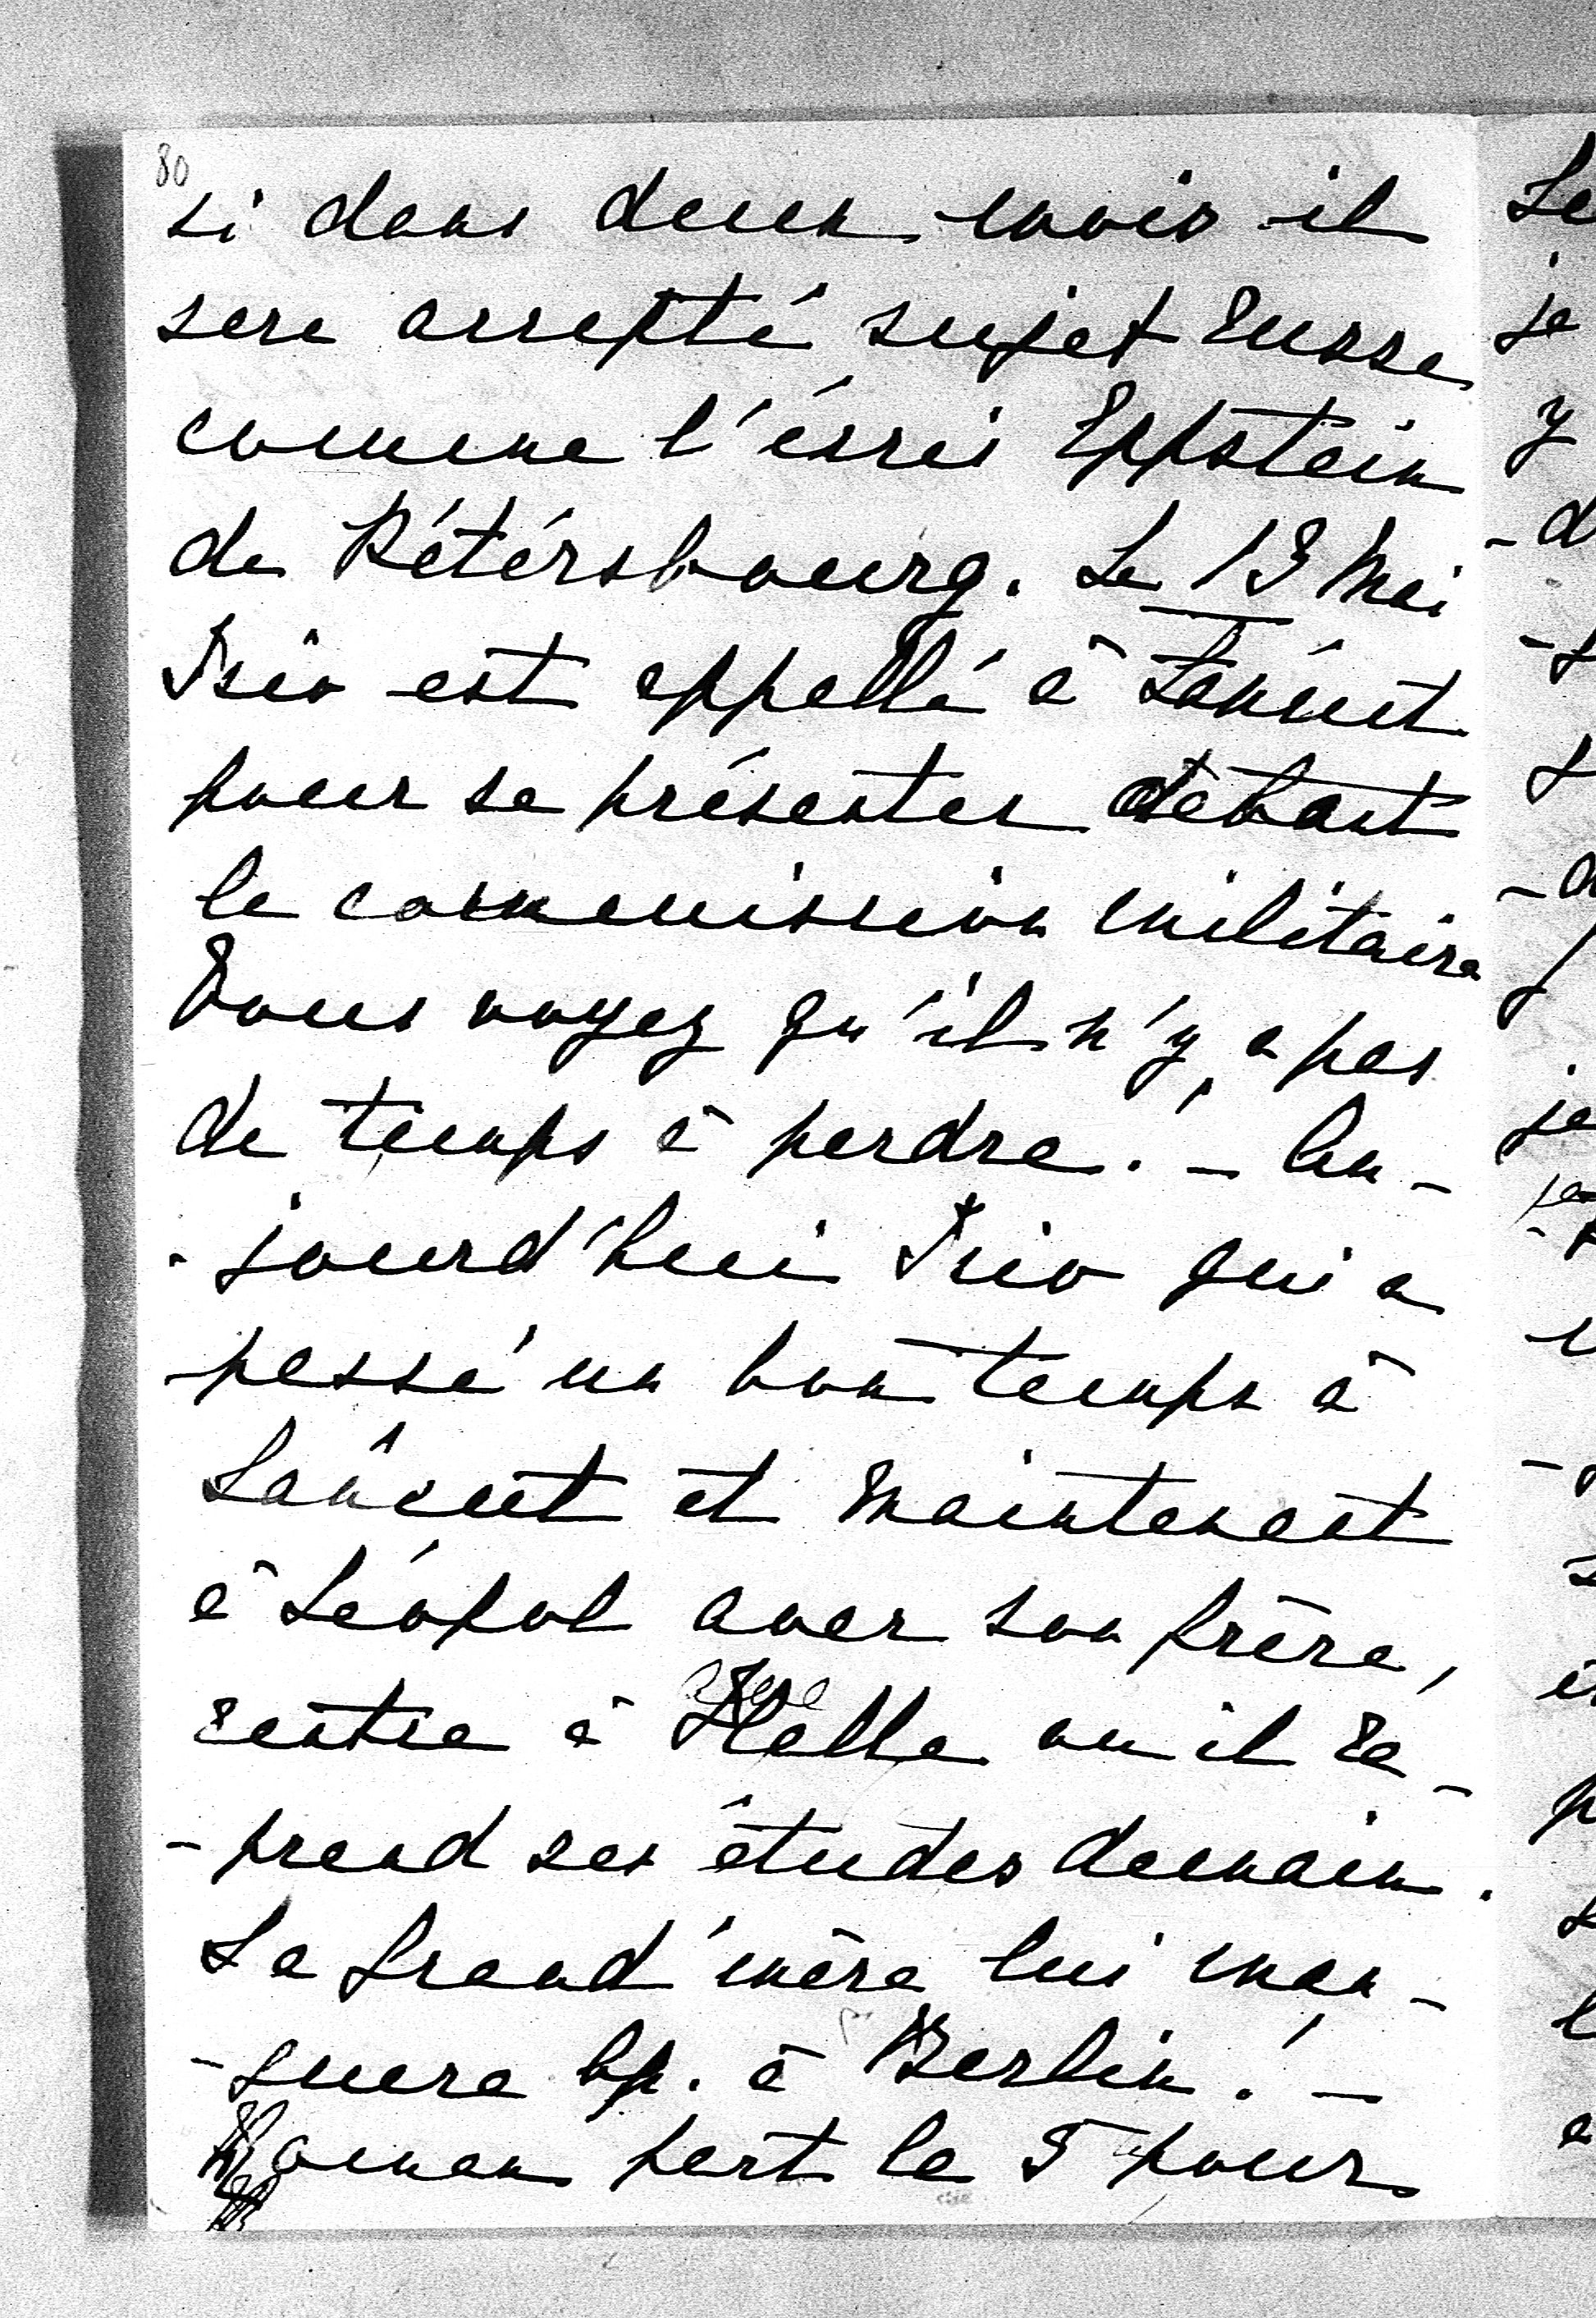 80
si dans deux mois il
sera accepté sujet russe
comme l'essai Eppstein
de Pétérsbourg. Le 13 Mai
Isio est appellé à Łańcut
pour se présenter debant
la commission militaire
Vous voyez qu'il n'y a pas
de temps à perdre. — Au-
-jourd'hui Isio qui a
-passé un bon temps à
Łańcut et maintenant
à Léopol avec son frère,
rentre à Halle ou il re-
-prend ses études demain.
La Grand'mère lui man-
-quera bp. à Berlin. —
Roman part le 5 pour